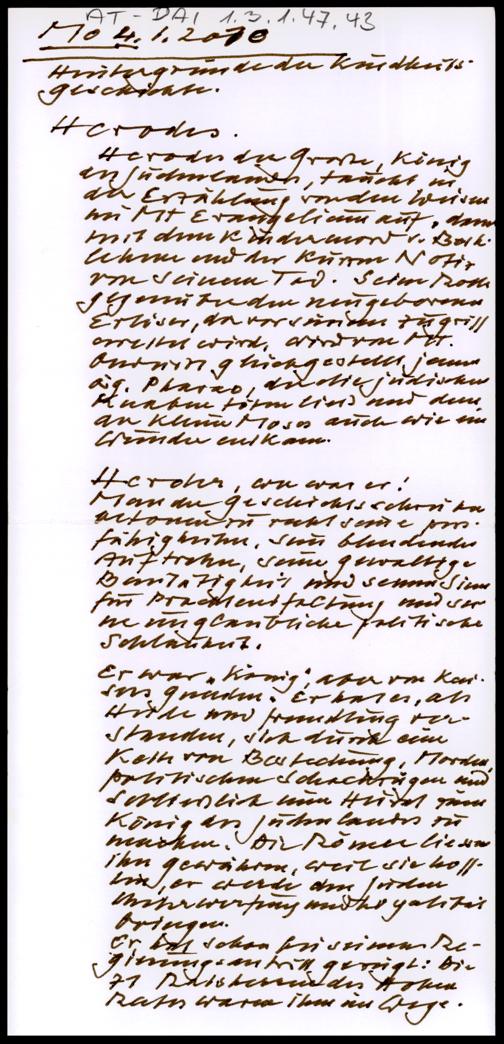 AT-DAI 1.3.1.47.43
Mo 4.1.2010
Hintergründe der Kindheits-
geschichte.
Herodes.
Herodes der Grosse, König
des Judenlandes, taucht in
der Erzählung von den Weisen
im Mt Evangelium auf, dann
mit dem Kindermord v. Beth-
lehem und der kurzen Notiz
von seinem Tod. Seine Rolle
gegenüber dem neugeborenen
Erlöser, der vor seinem Zugriff
gerettet wird, wird von Mt.
gleichgestellt jenem
äg. Pharao, der die jüdischen
Knaben töten liess und dem
der kleine Moses auch wie ein
Wunder entkam.
Herodes, wer war er?
Manche Geschichtsschreiber
betonen zu recht seine
fähigkeiten, sein blendendes
Auftreten, seine gewaltige
Bautätigkeit und seinen Sinn
für Prachtentfaltung und sei-
ne unglaubliche politische
Schlauheit.
Er war „König", aber von Kai-
sers gnaden. Er hat es, als
Heide und Fremdling ver-
standen, sich durch eine
Kette von Bestechung, Morden,
politischen Schachzügen und
schliesslich eine Heirat zum
König des Judenlandes zu
machen. Die Römer liessen
ihn gewähren, weil sie hoff-
ten, er werde den Juden
Unterwerfung und Loyalität
bringen.
Er hat schon bei seinem Re-
gierungsantritt gezeigt: Die
71 Ratsherren des Hohen
Rates waren ihm im Wege.